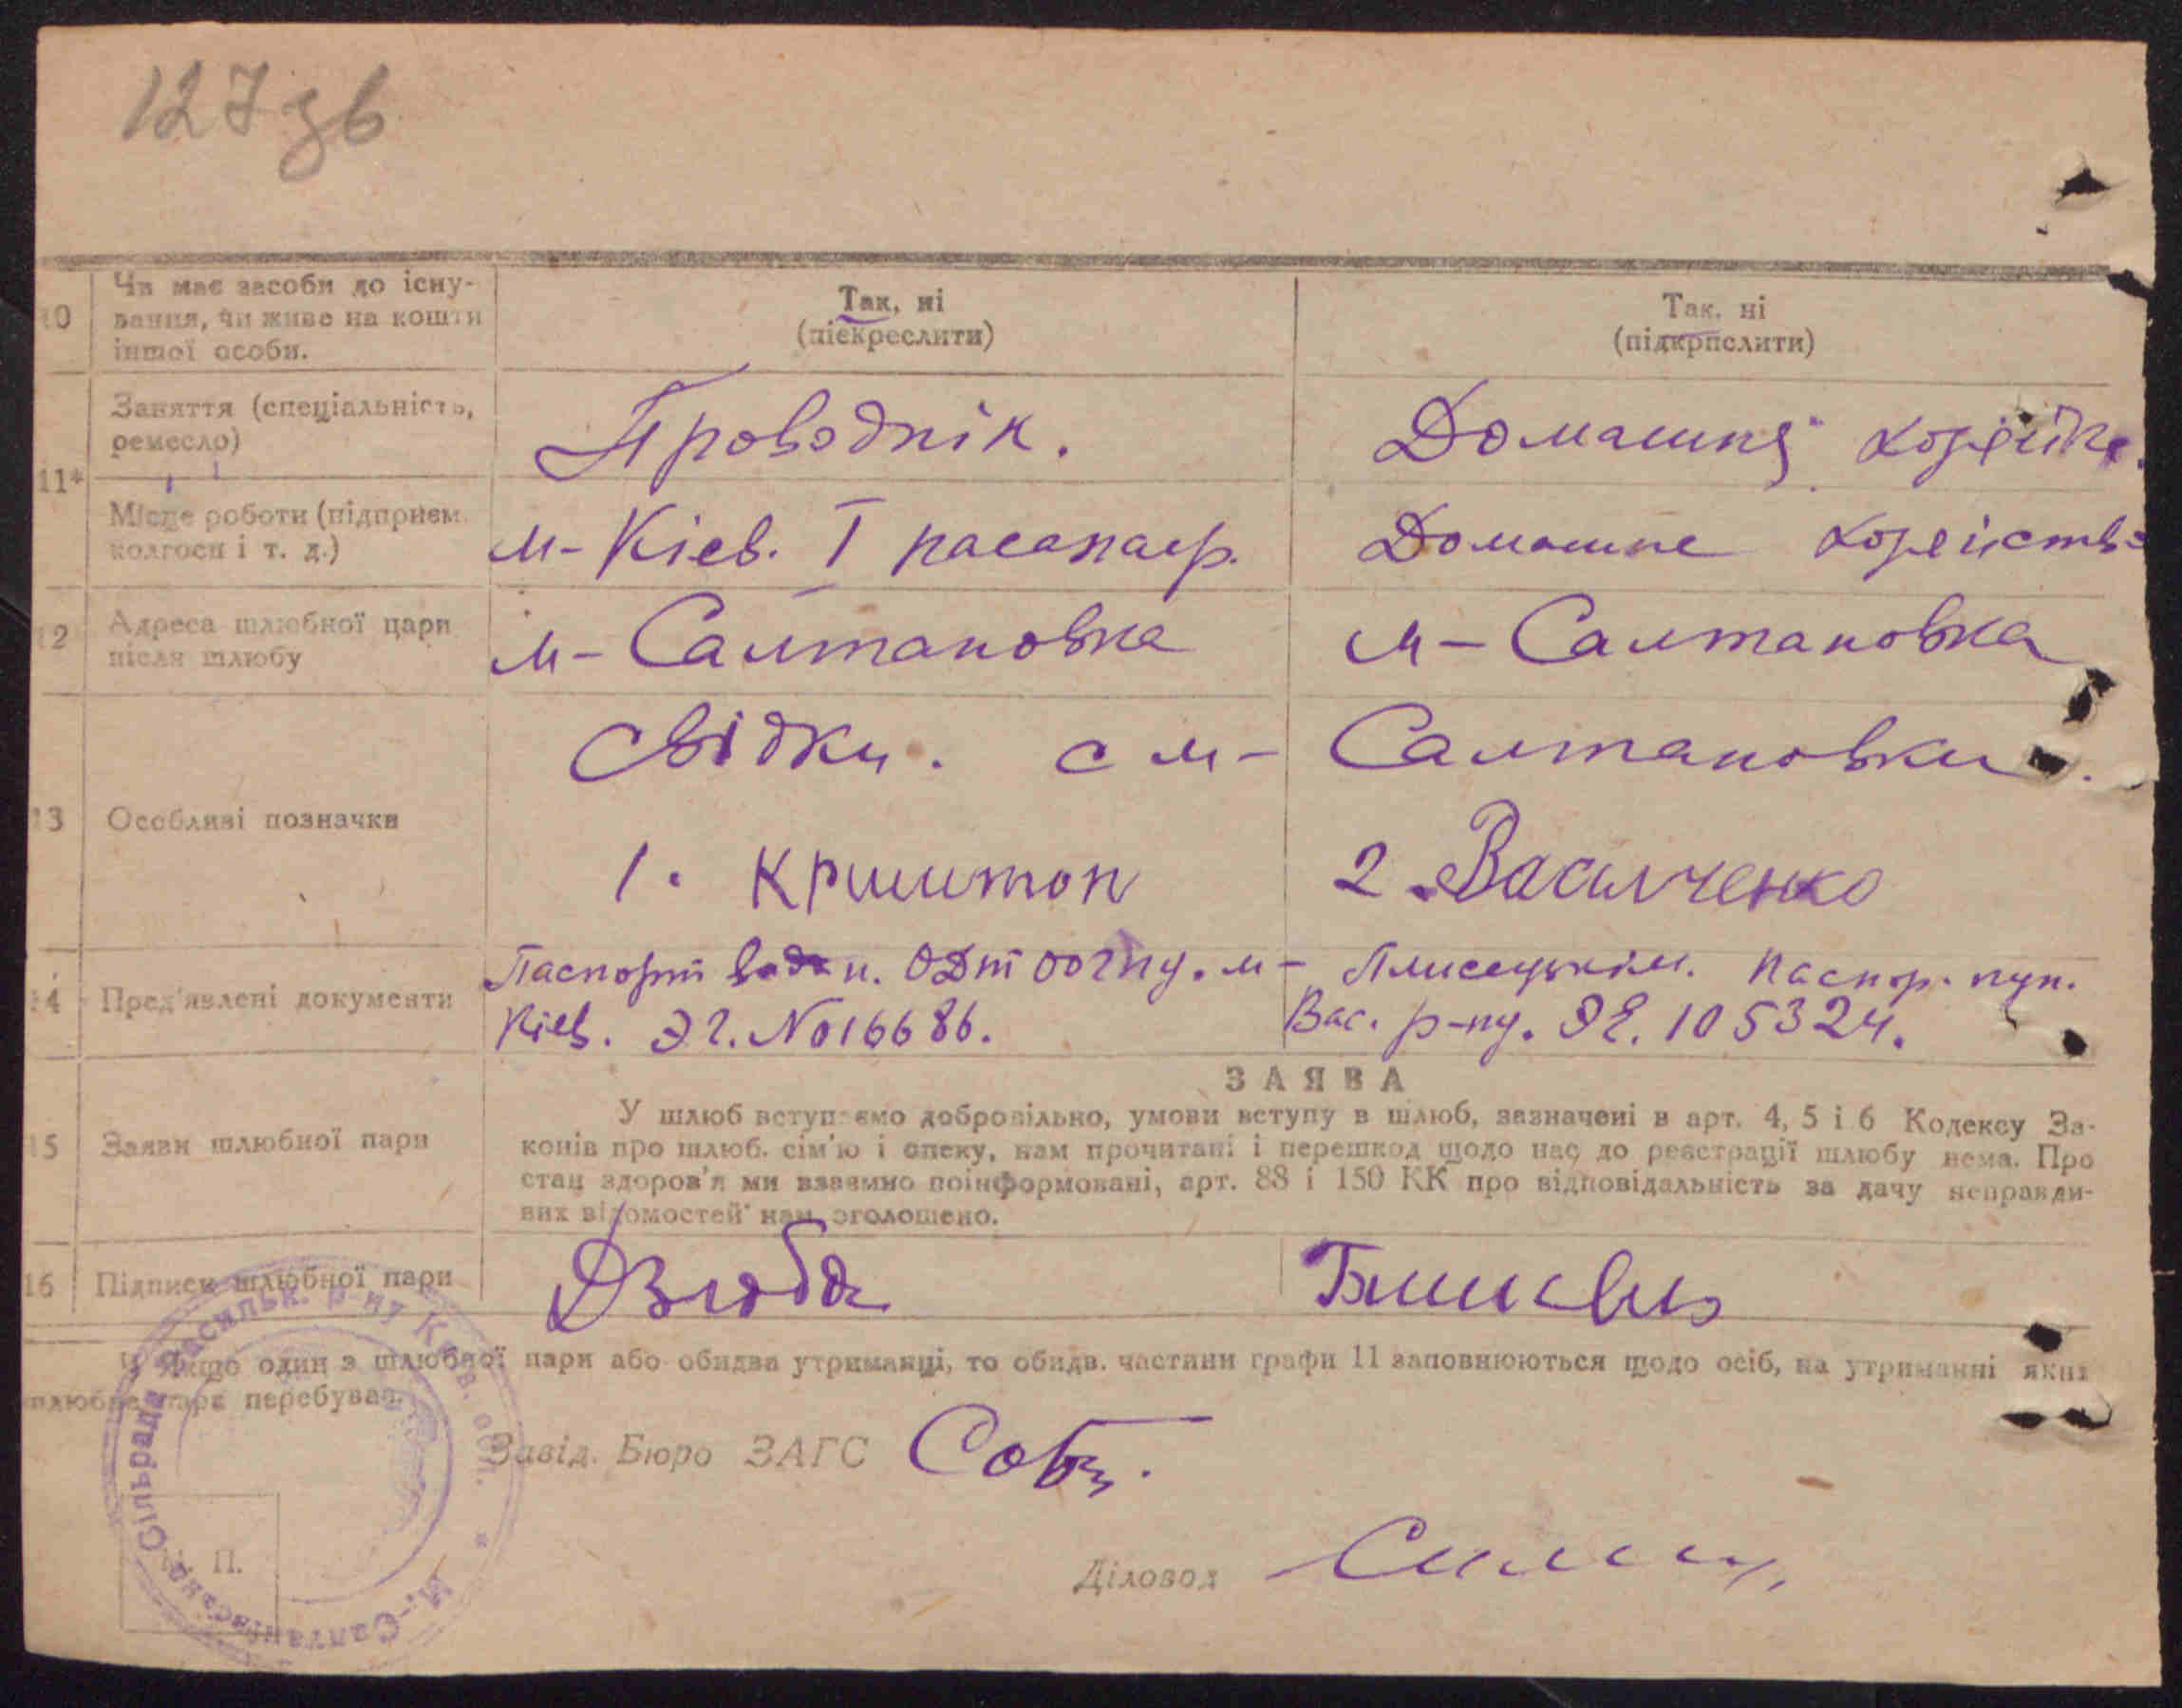 127 зв
10 Чи має засоби до існу-
вання, чи живе на кошти
іншої особи.
Так, ні
(піекреслити)
Так, ні
(підкрпслити)
11*
Заняття (спеціальність,
ремесло)
Проводнік.
Домашня хозяйка.
Місце роботи (підприєм.
колгосп і т. д.)
м-Кіев. I
Домашне хозяйство
12 Адреса шлюбної пари
після шлюбу
м-Салтановка
м-Салтановка
13 Особливі позначки
Свідки. с м-Салтановки.
1. Криштоп
2. Василченко
14 Пред'явлені документи
Паспорт м-
Кіев. Э г. № 16686.
Паспор. пун.
Вас. р-ну. 105324.
15 Заяви шлюбної пари
ЗАЯВА
У шлюб вступаємо добровільно, умови вступу в шлюб, зазначені в арт. 4, 5 і 6 Кодексу За-
конів про шлюб. сім'ю і опеку, нам прочитані і перешкод щодо нас до реєстрації шлюбу нема. Про
стан здоров'я ми взаємно поінформовані, арт. 88 і 150 КК про відповідальність за дачу неправди-
вих відомостей нам оголошено.
16 Підписи шлюбної пари
Дзюба
Якщо один з шлюбної пари або обидва утриманці, то обидв. частини графи 11 заповнюються щодо осіб, на утриманні яких
шлюбна пара перебуває.
Завід. Бюро ЗАГС
Діловод
П.
М.-Салтанівська Сільрада Васильк. р-ну Київ. обл. *